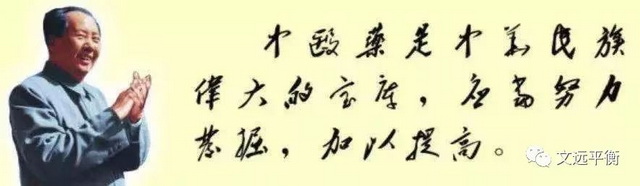 中醫藥是中華民族
偉大的宝库，应当努力
发掘，加以提高。
文远平衡